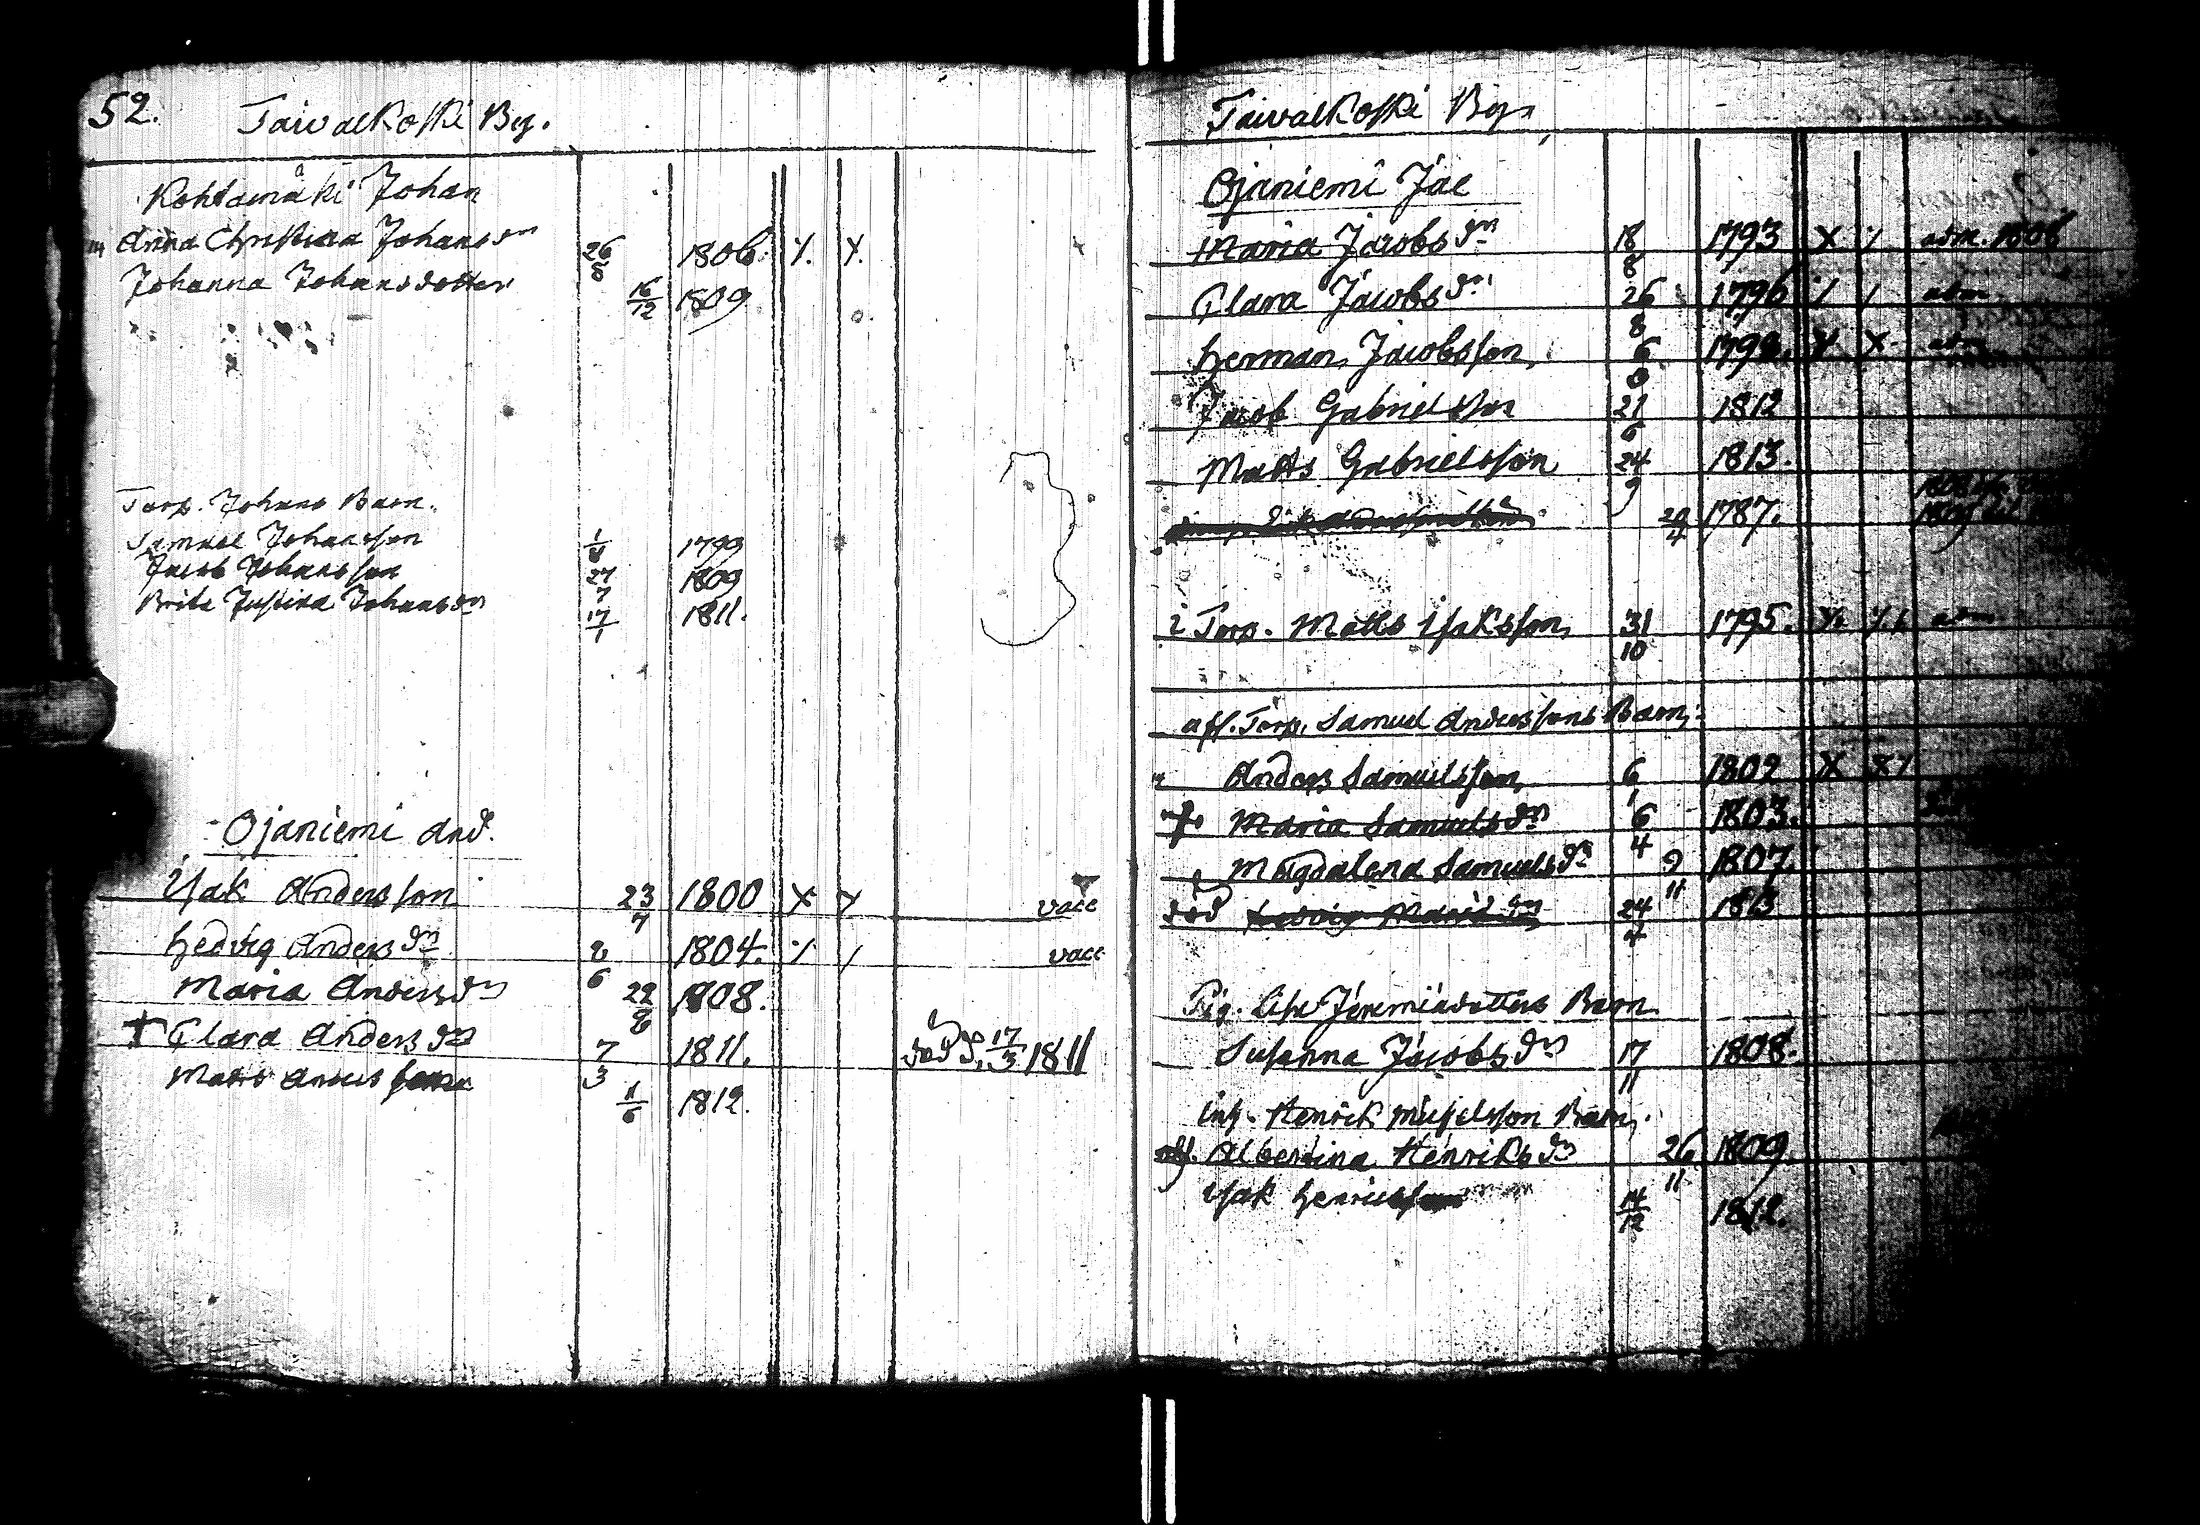 52.
Taivalkoski By.
Kohtamäki Johan
Anna Christina Johansdr 26/8 1806. X. X.
Johanna Johansdotter 16/12 1809
Torp. Johans Barn.
Samuel Johansson 1799
Jacob Johansson 27/7 1809
Brita Justina Johansdr 17/1 1811.
Ojaniemi And.
Isak Andersson 23/7 1800 X X vacc
Hedvig Andersdr 2/6 1804. vacc
Maria Andersdr 1808.
† Clara Andersdr 7/3 1811. död d. 17/3 1811
Matts Anders 11/6 1812.
Taivalkoski By,
Ojaniemi Jac
Maria Jacobsdr 18/8 1793 X adm. 1808
Clara Jacobsdr 26/8 1796 adm
Herman Jacobsson 6 X adm
Jacob Gabrielsson 21/6 1812
Matts Gabrielsson 24/9 1813.
1787.
i Torp. Matts Isaksson 31/10 1795. adm
afl. Torp. Samuel Anderssons Barn;
Anders Samuelsson 6/1 1802 X X
† Maria Samuelsdr 6/4 1803.
Magdalena Samuelsdr 9/11 1807.
död 24/4 1813
Pig. Lisa Jeremiædotters Barn
Susanna Jacobsdr 17/11 1808.
Inh. Henrik Barn,
Albertina Henriksdr 26/11 1809.
Isak 14/12 1812.